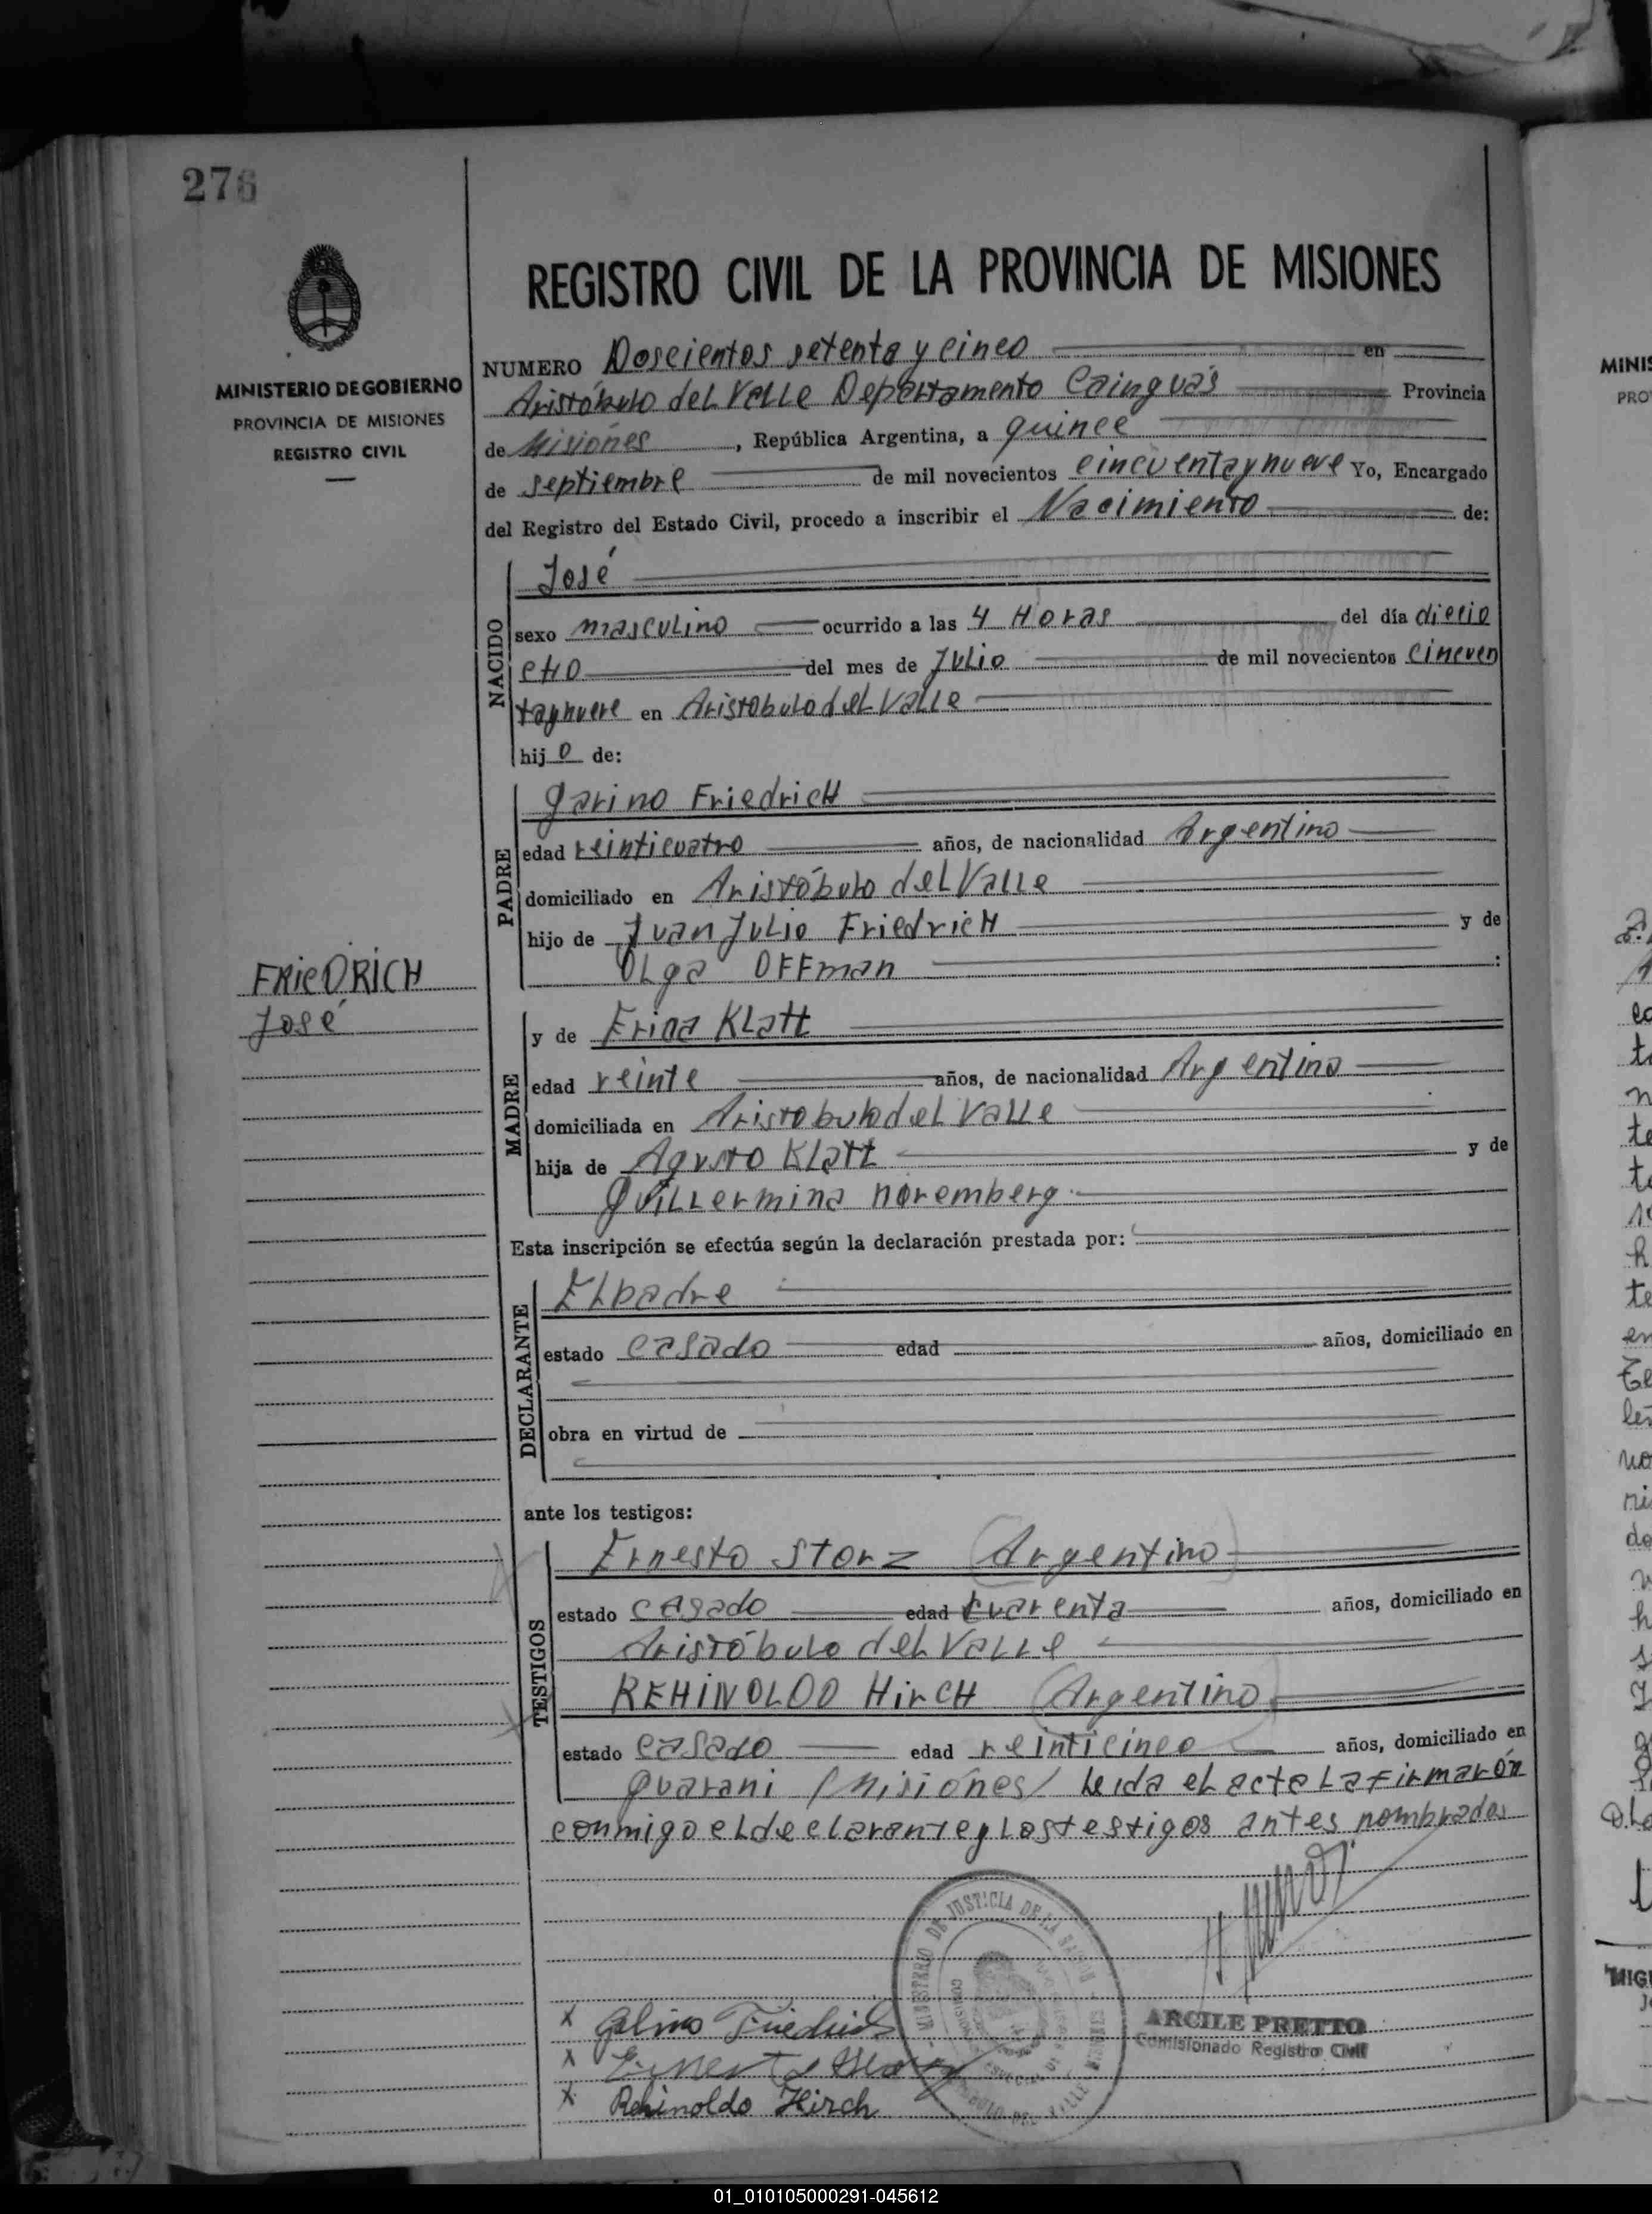 276
MINISTERIO DE GOBIERNO
PROVINCIA DE MISIONES
REGISTRO CIVIL
REGISTRO CIVIL DE LA PROVINCIA DE MISIONES
NUMERO Doscientos setenta y cinco en
Aristóbulo del Valle Departamento Cainguás Provincia
de Misiones, República Argentina, a quince
de septiembre de mil novecientos cincuentaynueve Yo, Encargado
del Registro del Estado Civil, procedo a inscribir el Nacimiento de:
NACIDO
José
sexo masculino ocurrido a las 4 Horas del día diecio
cHo del mes de Julio de mil novecientos Cincuen
taynueve en Aristobulo del Valle
hijo de:
PADRE
garino FriedricH
edad veinticuatro años, de nacionalidad Argentino
domiciliado en Aristóbulo del Valle
hijo de Juan Julio FriedricH y de
Olga OFFman
FRIEDRICH
José
MADRE
y de Erina Klatt
edad veinte años, de nacionalidad Argentina
domiciliada en Aristobulo del Valle
hija de Agusto Klatt y de
Guillermina noremberg
Esta inscripción se efectúa según la declaración prestada por:
DECLARANTE
El padre
estado casado edad años, domiciliado en
obra en virtud de
ante los testigos:
TESTIGOS
Ernesto Storz (Argentino)
estado casado edad cuarenta años, domiciliado en
Aristóbulo del Valle
REHINOLDO HirCH (Argentino)
estado casado edad veinticinco años, domiciliado en
Guarani (Misiónes) Leida el acta La firmarón
conmigo el declarante y Los testigos antes nombrados
MINISTERIO DE JUSTICIA DE LA
ARCILE PRETTO
Comisionado Registro Civil
x Galino Friedrich
x Ernesto Storz
x Rehinoldo Hirch
MINIS
PRO
MIGU
01_010105000291-045612